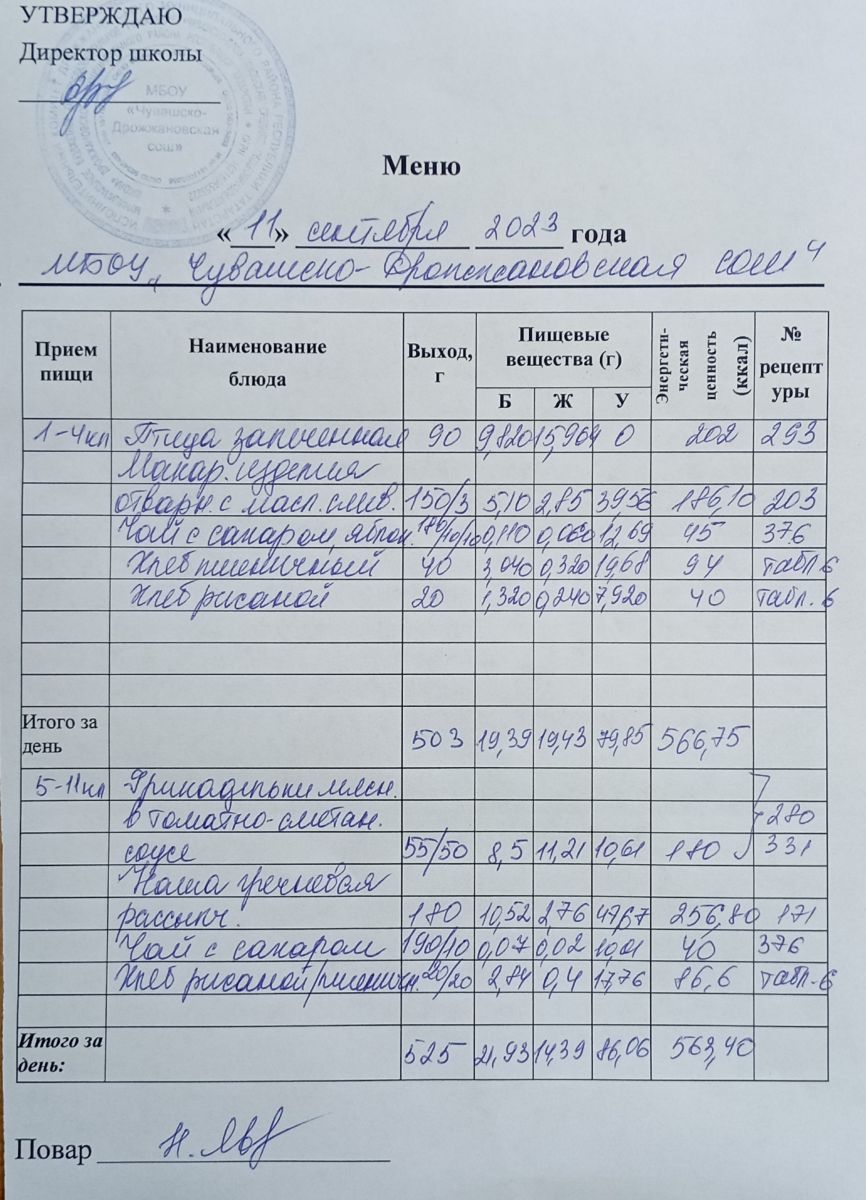 УТВЕРЖДАЮ
Директор школы
МБОУ
«Чувашско-
Дрожжановская
сош»
Меню
« 11 » сентября 2023 года
МБОУ „Чувашско-Дрожжановская сош"
Прием пищи Наименование блюда Выход, г Пищевые вещества (г) Энергетическая ценность (ккал) № рецептуры
Б Ж У
1-4кл Птица запеченная 90 9,820 15,964 0 202 293
Макар. изделия
отварн. с масл. слив. 150/3 5,10 2,85 39,56 186,10 203
Чай с сахаром, яблок. 180/10/10 0,110 0,060 12,69 45 376
Хлеб пшеничный 40 3,040 0,320 19,68 94 табл 6
Хлеб ржаной 20 1,320 0,240 7,920 40 табл. 6
Итого за день 503 19,39 19,43 79,85 566,75
5-11кл Фрикадельки мясн.
в томатно-сметан. 280
соусе 55/50 8,5 11,21 10,61 180 331
Каша гречневая
рассыпч. 180 10,52 2,76 47,67 256,80 171
Чай с сахаром 190/10 0,07 0,02 10,01 40 376
Хлеб ржаной/пшеничн. 20/20 2,84 0,4 17,76 86,6 табл. 6
Итого за день: 525 21,93 14,39 86,06 563,40
Повар